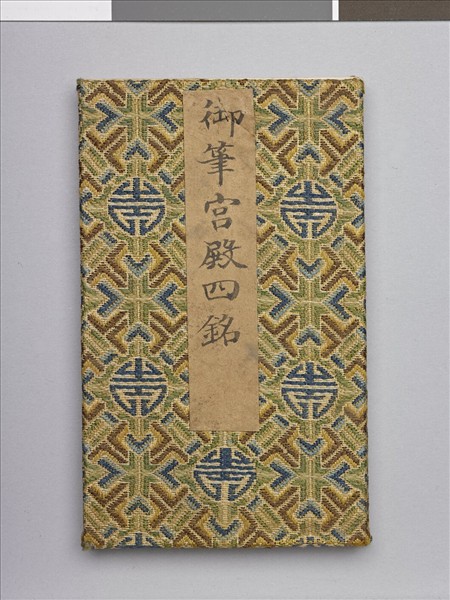 御筆宮殿四銘